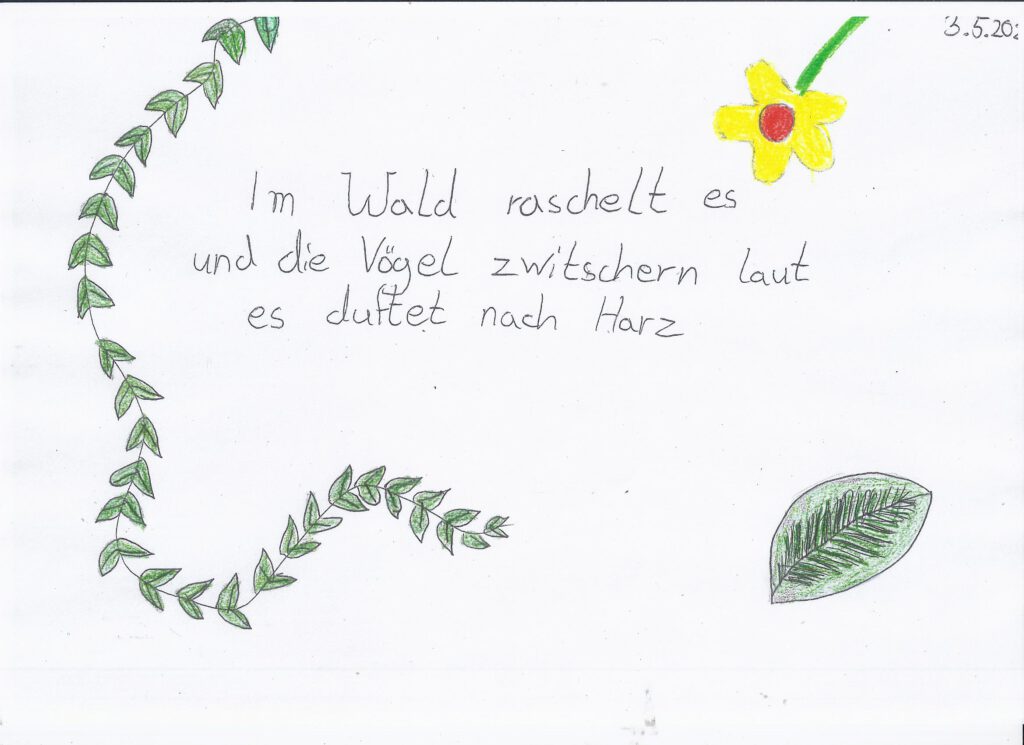 3.5.20
Im Wald raschelt es
und die Vögel zwitschern laut
es duftet nach Harz